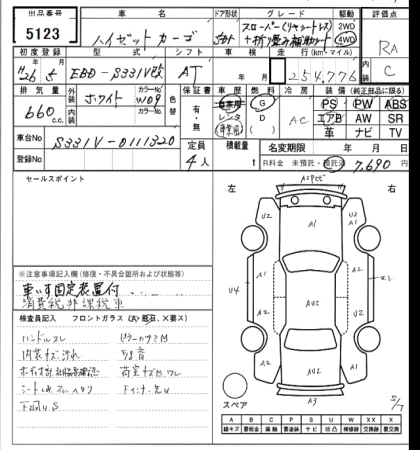 出品番号 車名 ドア形状 グレード 駆動 評価点
5123 ハイゼットカーゴ スローパー(リヤシートレス) 2WD
+折り畳み補助シート 4WD RA
初度登録 型式 シフト 車検 走行(km・マイル) 内装
H26 5 EBD-S331V改 AT 年 月 254,776 C
排気量 外装 カラーNo 色替 保証書 車歴 燃料 冷房 装備(純正部品に限る)
660 c.c. ホワイト W09 有・無 自家用 G AC PS PW ABS
内装 カラーNo レンタ D エアB AW SR
革 ナビ TV
車台No S331V-0111320 定員 積載量 名変期限 年 月 日
登録No 4人 t R料金 未預託・預託済 7,690
セールスポイント 左 右
A2Pﾋﾞ
U2 A1 U2 A1
A1 A2
U4 AU2 X1
A1 A2
A2 AU2 A2
A3
S/T
スペア
※注意事項記入欄(修復・不具合箇所および状態等)
車いす固定装置付
消費税非課税車
検査員記入 フロントガラス(A・飛石・X要ス)
ハンドルスレ ピラーカサミM
内装キズ、汚れ
シートしみ、スレ、ヘタリ
下回りS
A B C P S U W X XX X
線キズ 要板金 腐食 要塗装 サビ 凹凸 補修跡 要交換 交換跡 要交換